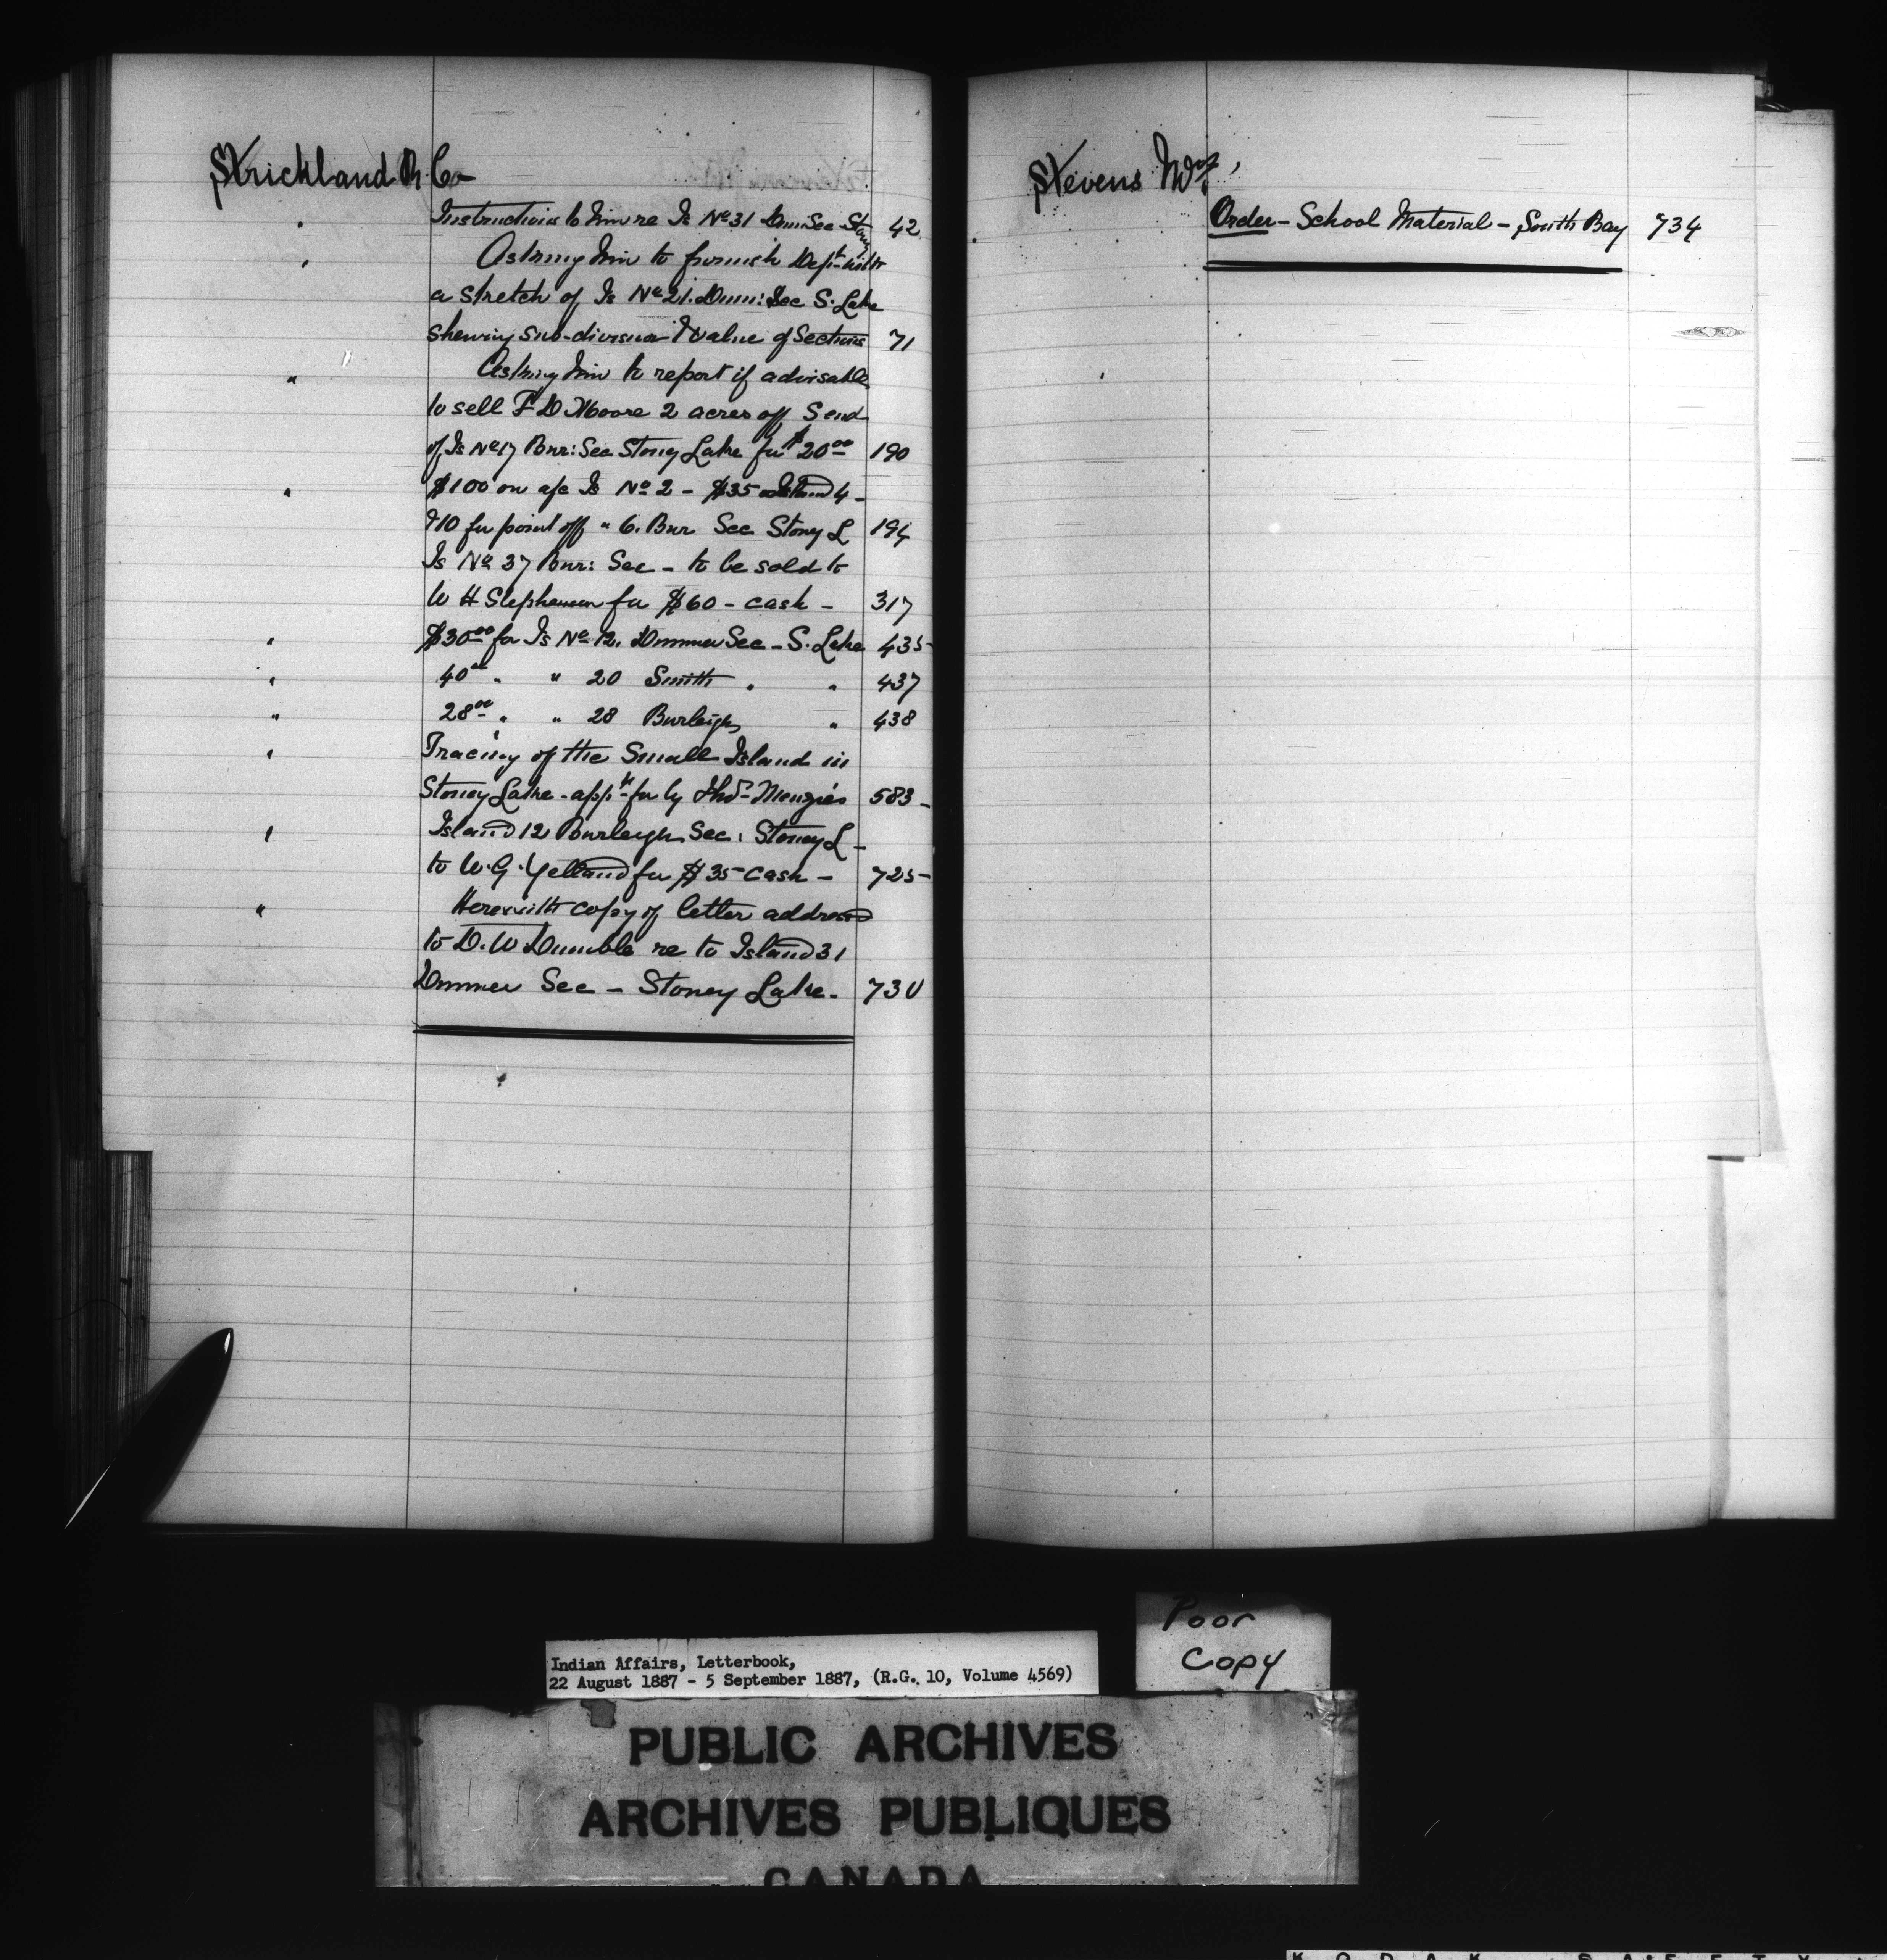 Strickland R. Co
" Instructions to him re Is No 31 Dum: Sec Stony 42
" Asking him to furnish Dept with
a sketch of Is No 21. Dum: Sec S. Lake
shewing sub-division & value of Sections 71
" Asking him to report if advisable
to sell F D Moore 2 acres off S end
of Is No 17 Bur: Sec Stoney Lake for $20 00 190
" $100 on a/c Is No 2 - $35 Island 4 -
& 10 for point off " 6. Bur Sec Stoney L 194
Is No 37 Bur: Sec - to be sold to
W H Stephenson for $60 - cash - 317
" $30 00 for Is No 12. Dummer Sec - S. Lake 435
" 40 00 " " 20 Smith " " 437
" 28 00 " " 28 Burleigh " 438
" Tracing of the Small Island in
Stoney Lake - appd for by Thos Menzies 583 -
" Island 12 Burleigh Sec: Stoney L -
to W. G. Yelland for $35 cash - 725
" Herewith copy of letter addressed
to D. W Dumble re to Island 31
Dummer Sec - Stoney Lake. 730
Stevens Wm,
Order - School Material - South Bay 734
Poor
Copy
Indian Affairs, Letterbook,
22 August 1887 - 5 September 1887, (R.G. 10, Volume 4569)
PUBLIC ARCHIVES
ARCHIVES PUBLIQUES
CANADA
KODAK SAFETY